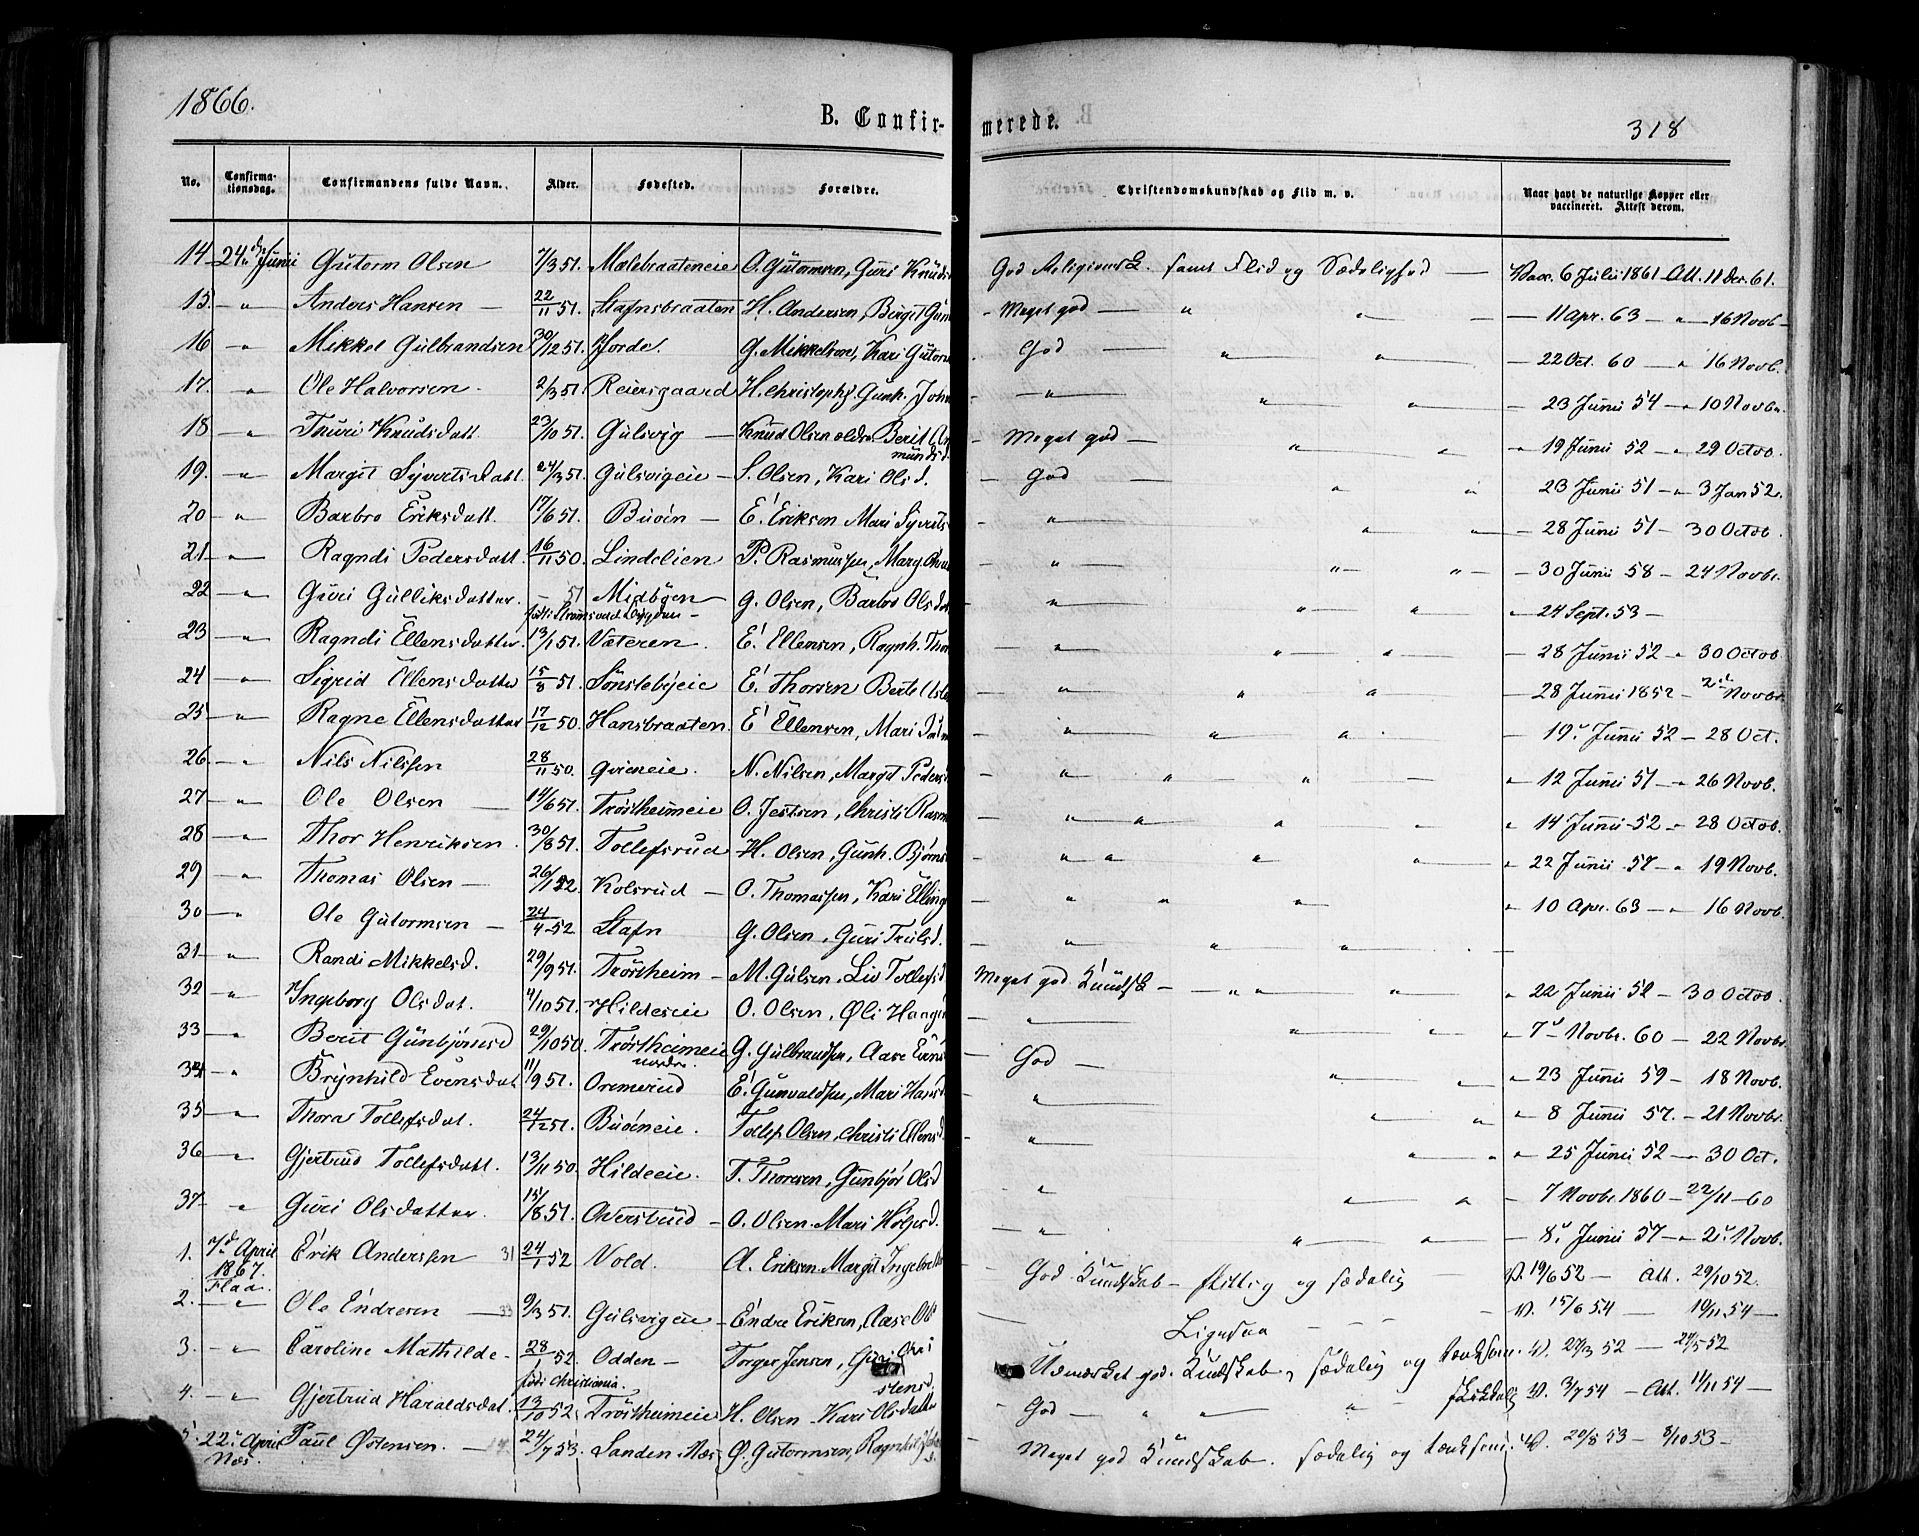 1866.
B. Confir-
merede.
318
No.
Confirma-
tionsdag.
Confirmandens fulde Navn.
Alder.
Fødested.
Forældre.
Christendomskundskab og Flid m. v.
Naar havt de naturlige Kopper eller
vaccineret. Attest derom.
14 24de Junii Gutorm Olsen 7/3 51. Mælebraateneie O. Gutormsen, Guri Knuds God Religionsk. samt Flid og Sædelighed — Vacc. 6 Julii 1861 Att. 11 Dec. 61.
15 — „ Anders Hansen — 22/11 51. Stafnsbraaten H. Andersen, Birgit Gun - Meget god — „ „ — 11 Apr. 63 — „ 16 Novb.
16 „ Mikkel Gulbrandsen 30/12 51. Hjorde. G. Mikkelsen, Kari Gutorm God — „ „ — 22 Oct. 60 — „ 16 Novb.
17. „ Ole Halvorsen 2/3 51. Reiersgaard H. Christoph. Gunh. John — „ „ „ — 23 Junii 54 — „ 10 Novbr.
18 „ Thuri Knudsdatt. 23/10 51. Gulsvig — Knud Olsen ældre Berit A - Meget god — „ „ „ 19 Junii 52 „ 29 Octob.
mundsd.
19. — „ Margit Syvertsdatt. 24/3 51. Gulsvigeie — S. Olsen, Kari Olsd. - God — „ „ 23 Junii 51 — „ 3 Jan 52.
20 — „ Barbro Eriksdatt. 17/6 51. Buøin — E. Erikson Mari Syverts „ „ „ — 28 Junii 51 — 30 Octob.
21 — „ Ragndi Pedersdatt. 16/11 50. Lindelien P. Rasmussen, Marg. „ „ „ — 30 Junii 58 — 24 Novbr.
22 — „ Guri Gulliksdatter. — 51 Midbøen — G. Olsen, Barbro Olsdat — „ „ „ „ 24 Sept. 53 —
23 — „ Ragndi Ellensdatter 13/1 51. Væteren. E. Ellensen, Ragnh. Thor „ „ „ — 28 Junii 52 „ 30 Octob
24 „ Sigrid Ellensdatter 15/8 51. Sønstebyeie E. Thorsen Berte „ „ „ — 28 Junii 1852 — 2 Novbr
25 — „ Ragne Ellensdatter 17/12 50. Hansbraaten. E. Ellensen, Mari „ „ „ — 19. Junii 52 — 28 Oct.
26. — „ Nils Nilssen 28/11 50. Qvieneie. N. Nilsen, Margit Peders „ „ „ „ 12 Junii 51 — „ 26 Novb.
27 — „ Ole Olsen — 14/6 51. Trøstheimeie O. Jestsen, Christi Rasm „ „ „ „ „ 14 Junii 52 — „ 28 Octob.
28 — „ Thor Henriksen. 30/8 51. Tollefsrud H. Olsen, Gunh. Bjørns „ „ „ „ — 22 Junii 57 — „ 19 Novb.
29 — „ Thomas Olsen — 26/1 52 Kolsrud — O. Thomassen, Kari Elling „ „ „ „ 10 Apr. 63 — „ 16 Novb.
30 — „ Ole Gutormsen — 24/4 52 Stafn G. Olsen, Guri Trulsd. „ „ „ —
31 — „ Randi Mikkelsd. 29/9 51. Trøstheim — M. Gulsen, Liv Tollefsd Meget god Kundsk — „ „ „ „ 22 Junii 52 — 30 Octob.
32 „ Ingeborg Olsdat. 4/10 51. Hildeseie O. Olsen, Øli Haagen „ „ „ — 7 Novbr. 60 — 22 Novbr
33 „ Berit Gunbjørnsd 29/10 50. Trøstheimeie G. Gulbrandsen, Aase Evens — God — „ „ — 23 Junii 59 — 18 Novb.
nordre.
34 „ Brynhild Evensdat 11/9 51. Oremerud E. Gunvaldsen, Mari Hansd „ „ „ „ 8 Junii 57. — 21 Novbr.
35 — „ Thora Tollefsdat. 24/12 51. Buøineie. Tollef Olsen, Christi Ellensd. „ „ „ „ 25 Junii 52 — „ 30 Oct.
36 — „ Gjertrud Tollefsdatt. 13/11 50. Hildeeie. T. Thoresen, Gunbjør Olsd „ „ „ „ 7 Novbr. 1860 — 22/11 — 60
37 — „ Guri Olsdatter 15/8 51. Aversrud — O. Olsen. Mari Holgesd. „ „ „ — 8. Junii 57 — „ 2. Novb.
1. 7de April Erik Anderssen 31 24/1 52 Vold. A. Eriksen. Margit Ingebr God Kundskab — flittig og sædelig — V. 19/6 52 — Att. 29/10 52.
1867.
Flaa.
2. „ Ole Endresen — 33 9/3 51. Gulsvigeie — Endre Eriksen, Aase — Ligesaa — — — V. 15/6 54 — 19/11 54 —
3. „ Caroline Mathilde — 28/1 52. Odden — Torger Jensen, Udmærket god Kundskab, sædelig og tænksom. V. 27/3 52 — 24/5 52
født i Christiania.
stensd.
4. — „ Gjertrud Haraldsdat. 13/10 52. Trøstheimeie H. Olsen — Kari Olsdatter God — „ „ „ V. 3/7 54 — Att. 11/11 54 —
5. 22. April Paul Østensen. — 24/7 53. Sanden Næs Ø. Gutormsen, Ragnhild Meget god Kundskab. sædelig og tænksom. V. 20/8 53 — 8/10 53 —
Næs.